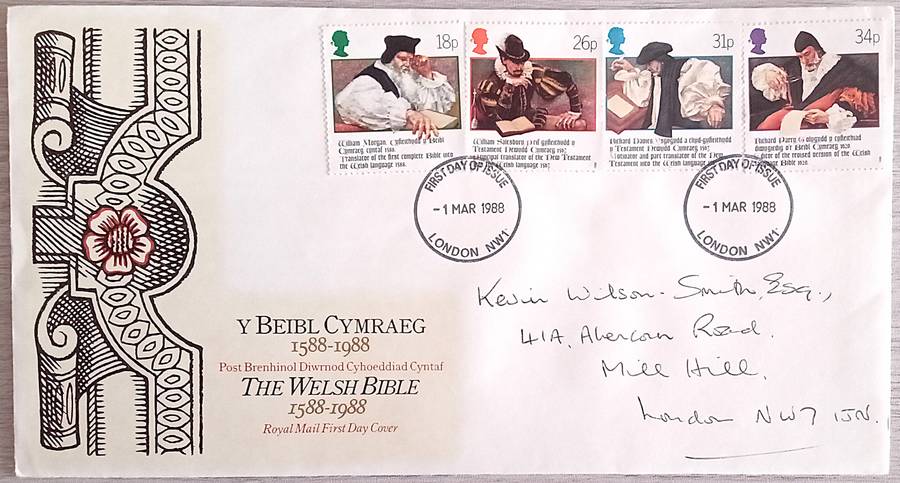 18p
William Morgan. Cyfieithydd y Beibl
Cymraeg cyntaf 1588.
Translator of the first complete Bible into
the Welsh language 1588.
26p
William Salesbury Prif gyfieithydd y
Testament Newydd Cymraeg 1567.
Principal translator of the New Testament
Welsh language 1567
31p
Richard Davies
Testament Newydd Cymraeg 1567.
and part translator of the New
Testament into the Welsh language
34p
Richard Parry Golygydd a cyfieithiad
diwygiedig o'r Beibl Cymraeg 1620
of the revised version of the Welsh
Bible 1620
FIRST DAY OF ISSUE
-1 MAR 1988
LONDON NW1
FIRST DAY OF ISSUE
-1 MAR 1988
LONDON NW1
Y BEIBL CYMRAEG
1588-1988
Post Brenhinol Diwrnod Cyhoeddiad Cyntaf
THE WELSH BIBLE
1588-1988
Royal Mail First Day Cover
Kevin Wilson-Smith, Esq.,
41A, Abercorn Road.
Mill Hill.
London NW7 1JN.